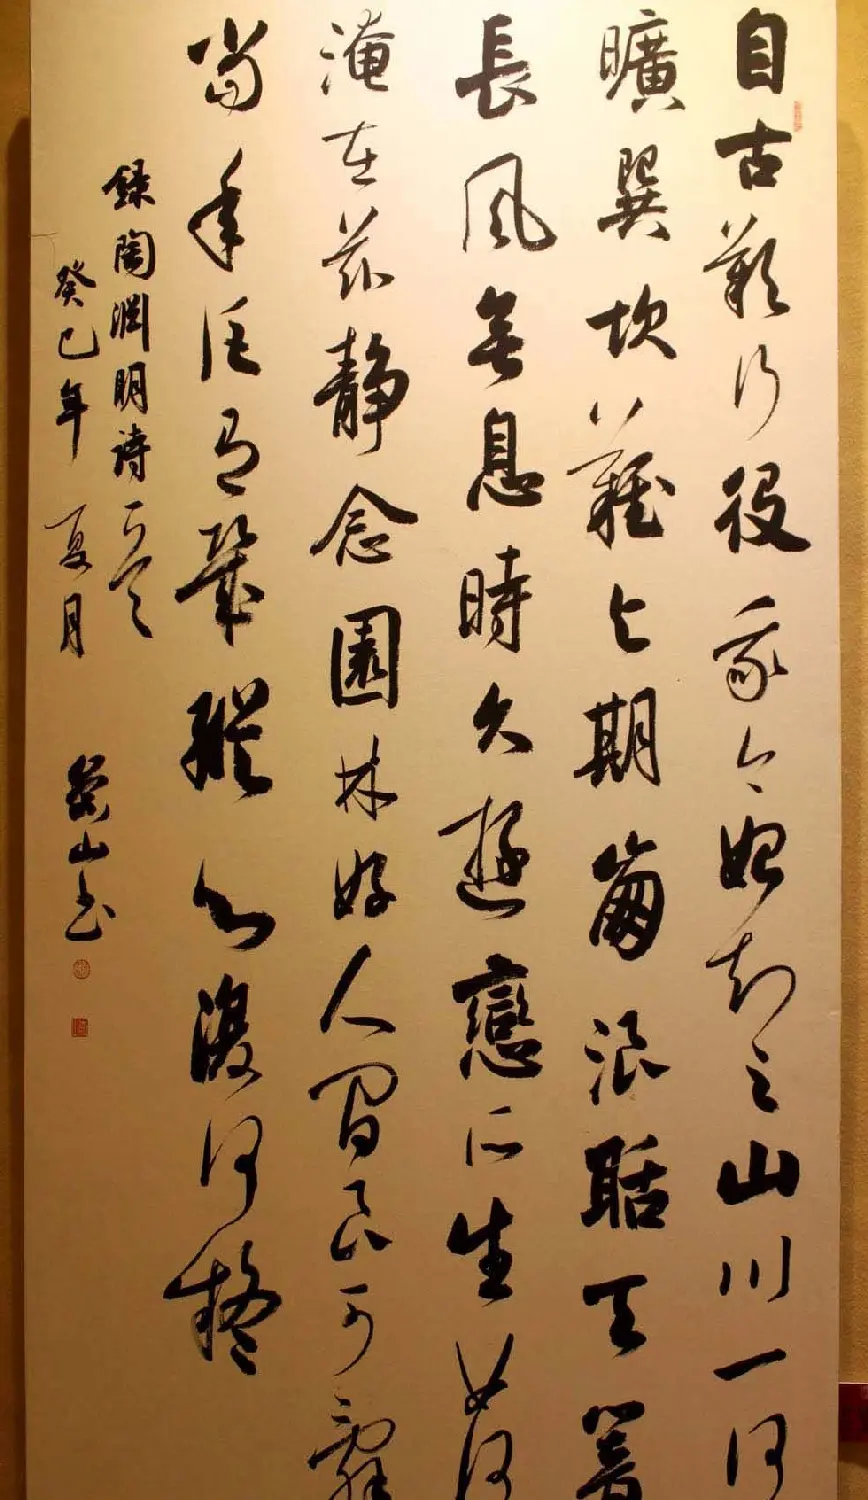 自古歎行役我今始知之山川一何
曠巽坎難与期崩浪聒天
長風無息時久遊戀所生如何
淹在茲静念園林好人間良可辭
當年詎有幾縱心復何疑
錄陶淵明詩一首
癸巳年夏月 山书